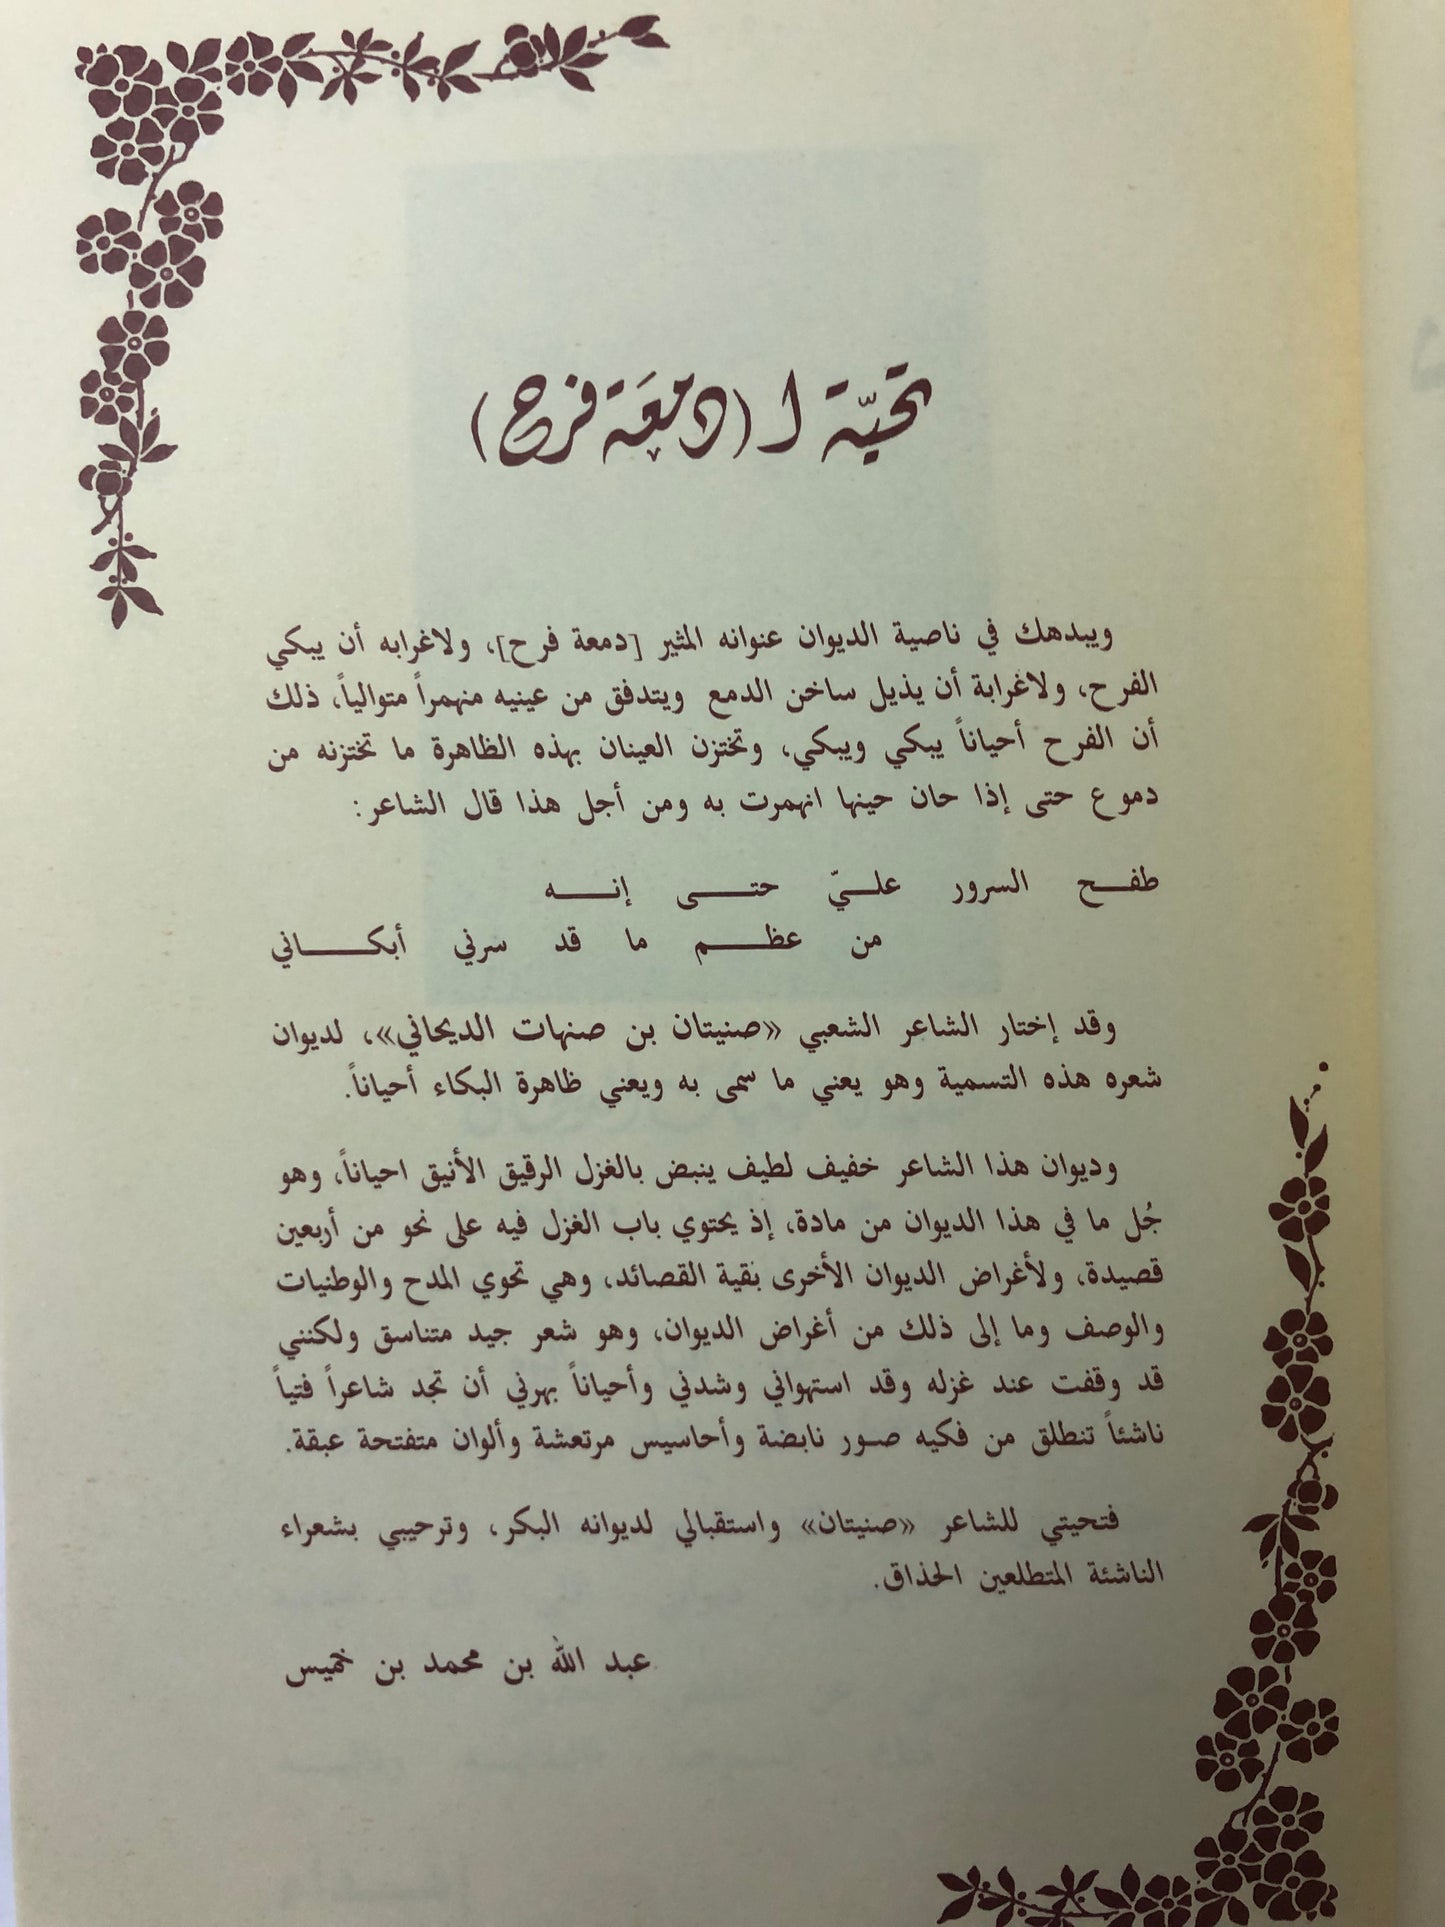 تحيّة لـ (دمعَة فرح)
ويبدهك في ناصية الديوان عنوانه المثير [دمعة فرح]، ولاغرابه أن يبكي
الفرح، ولاغرابة أن يذيل ساخن الدمع ويتدفق من عينيه منهمراً متوالياً، ذلك
أن الفرح أحياناً يبكي ويبكي، وتختزن العينان بهذه الظاهرة ما تختزنه من
دموع حتى إذا حان حينها انهمرت به ومن أجل هذا قال الشاعر:
طفــح السرور علــيّ حتــى إنــه
من عظــم ما قد سرني أبكــاني
وقد إختار الشاعر الشعبي «صنيتان بن صنهات الديحاني»، لديوان
شعره هذه التسمية وهو يعني ما سمى به ويعني ظاهرة البكاء أحياناً.
وديوان هذا الشاعر خفيف لطيف ينبض بالغزل الرقيق الأنيق احياناً، وهو
جُل ما في هذا الديوان من مادة، إذ يحتوي باب الغزل فيه على نحو من أربعين
قصيدة، ولأغراض الديوان الأخرى بقية القصائد، وهي تحوي المدح والوطنيات
والوصف وما إلى ذلك من أغراض الديوان، وهو شعر جيد متناسق ولكنني
قد وقفت عند غزله وقد استهواني وشدني وأحياناً بهرني أن تجد شاعراً فتياً
ناشئاً تنطلق من فكيه صور نابضة وأحاسيس مرتعشة وألوان متفتحة عبقة.
فتحيتي للشاعر «صنيتان» واستقبالي لديوانه البكر، وترحيبي بشعراء
الناشئة المتطلعين الحذاق.
عبد الله بن محمد بن خميس